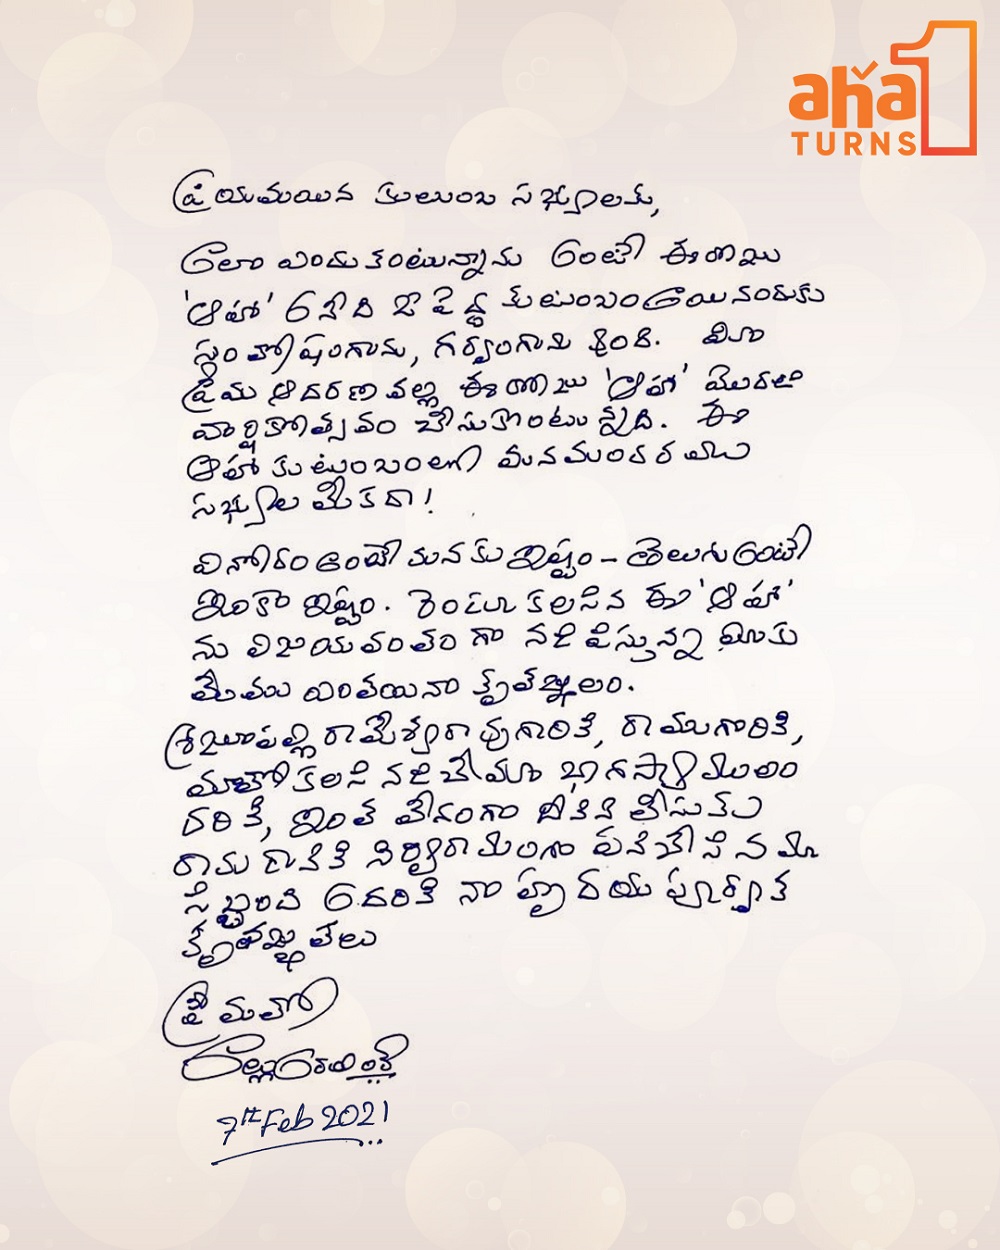 aha
TURNS 1
ప్రియమయిన కుటుంబ సభ్యులకు,
అలా ఎందుకంటున్నాను అంటే ఈరోజు
'ఆహా' అనేది ఓ పెద్ద కుటుంబం అయినందుకు
సంతోషంగాను, గర్వంగాను ఉంది. మీ
ప్రేమ ఆదరణ వల్ల ఈరోజు 'ఆహా' మొదటి
వార్షికోత్సవం చేసుకొంటున్నది. ఈ
ఆహా కుటుంబంలో మనమందరమూ
సభ్యులమే కదా!
వినోదం అంటే మనకు ఇష్టం - తెలుగు అంటే
ఇంకా ఇష్టం. రెండూ కలసిన ఈ 'ఆహా'
ను విజయవంతం గా నడిపిస్తున్న మీకు
మేము ఎంతయినా కృతజ్ఞులం.
శ్రీ జూపల్లి రామేశ్వరావుగారికి, రాముగారికి,
మాతో కలసి నడిచే మా భాగస్వాములం
దరికి, ఇంత వేగంగా దీనిని తీసుకు
రావడానికి నిర్విరామంగా పనిచేసిన మా
సిబ్బంది అందరికీ నా హృదయ పూర్వక
కృతజ్ఞతలు
ప్రేమతో
అల్లు అరవింద్
7th Feb 2021